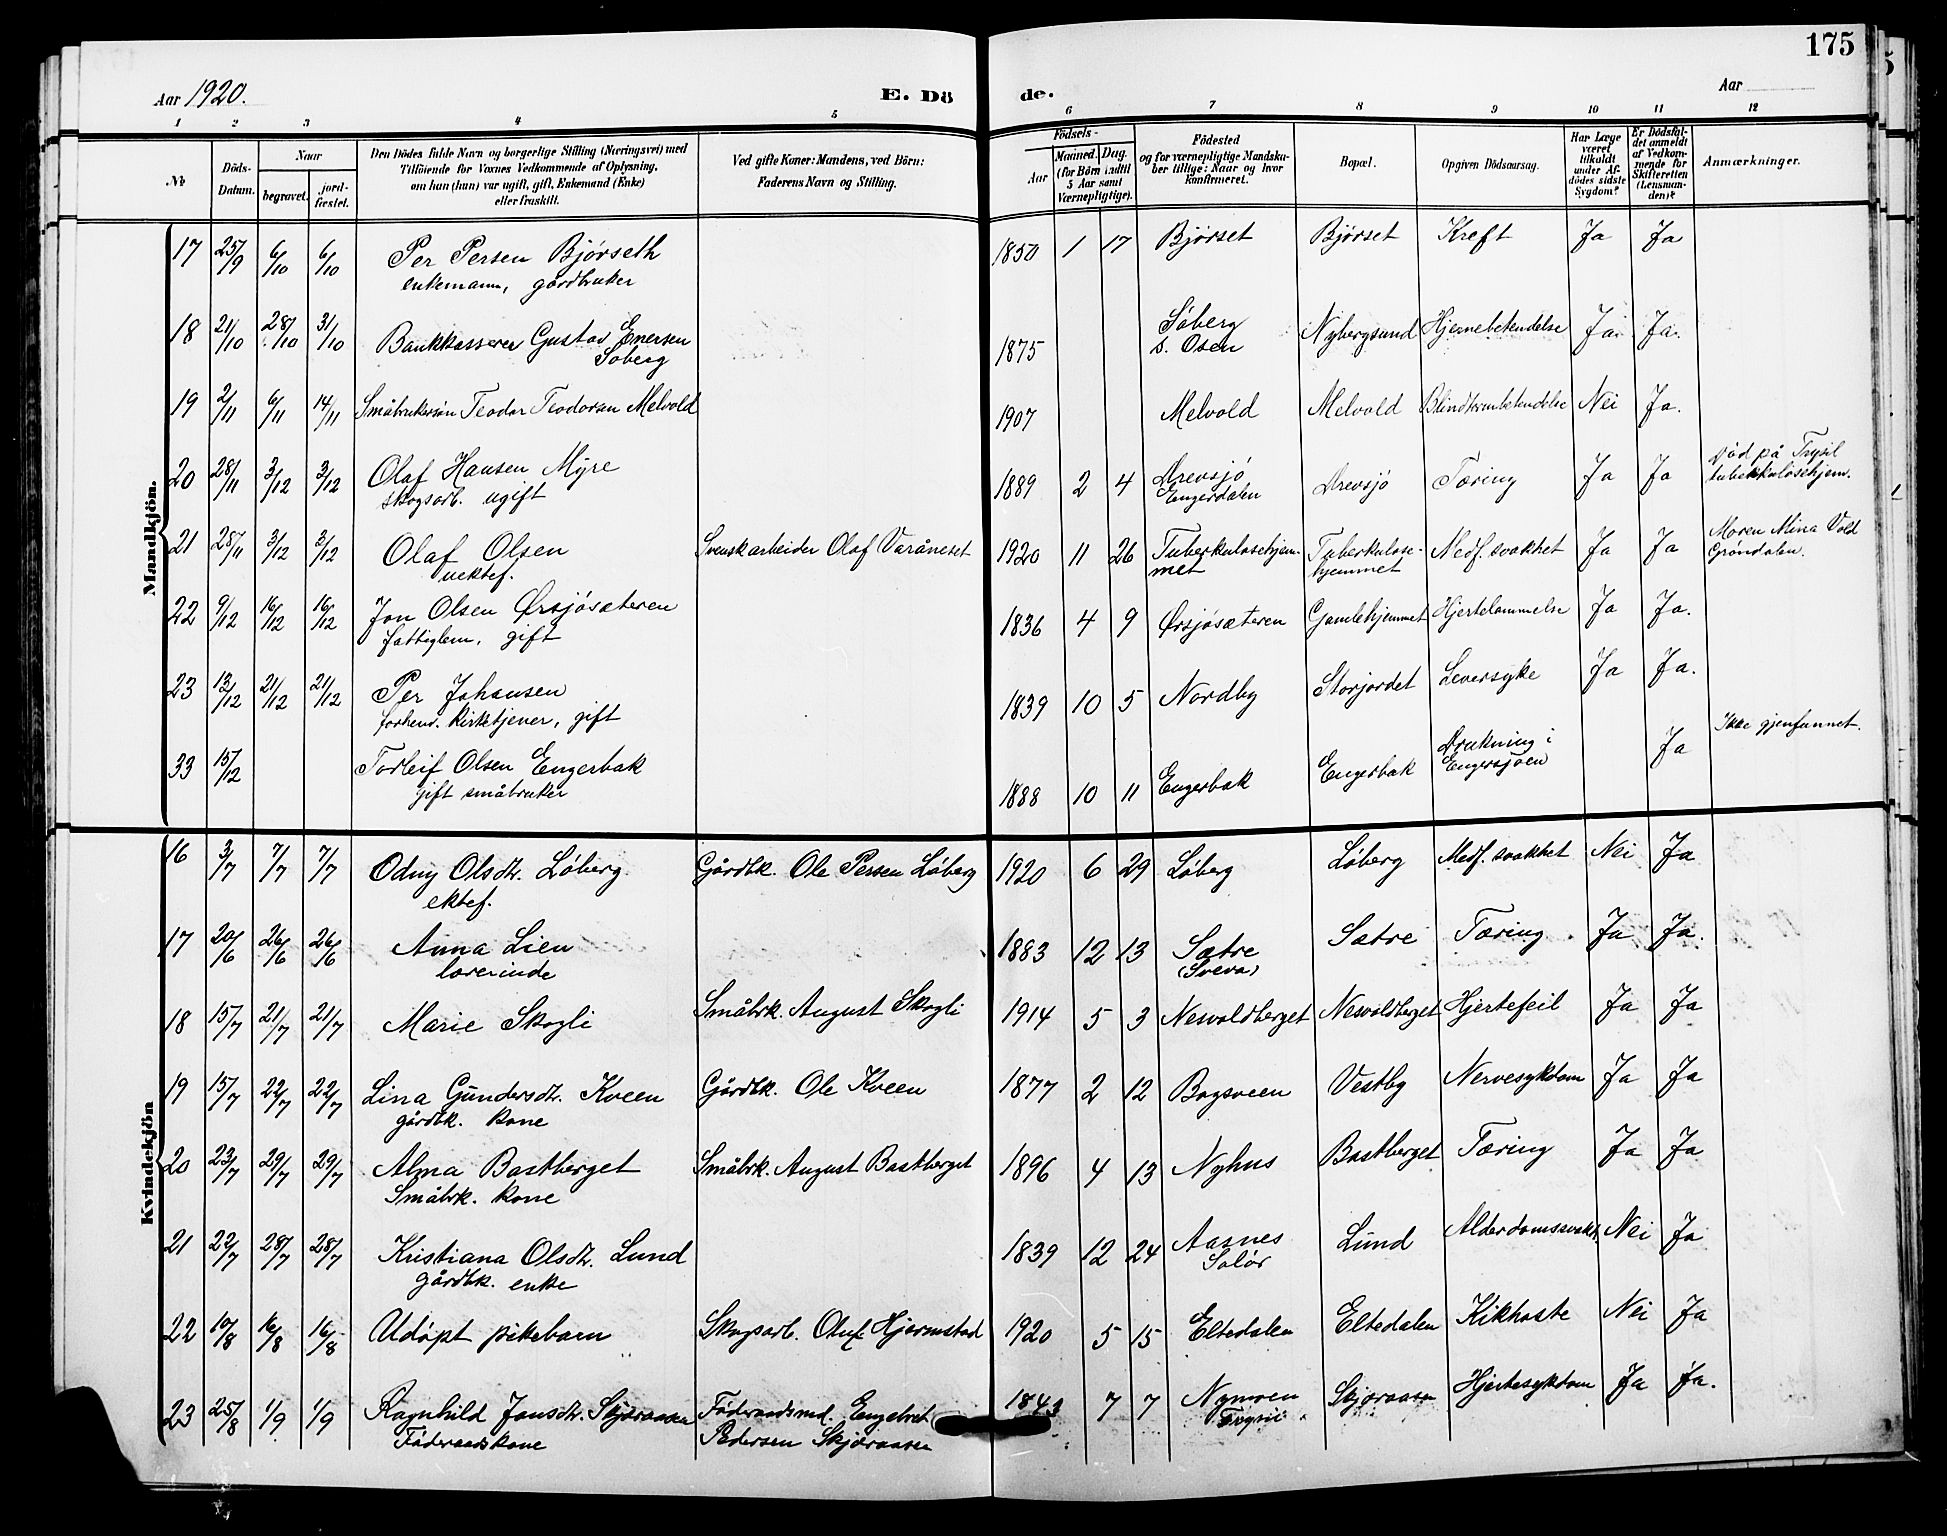 175
Aar 1920.
E. Dö
de.
Aar
1 2 3 4 5 6 7 8 9 10 11 12
No
Döds-Datum.
Naar
begravet.
jord-fæstet.
Den Dödes fulde Navn og borgerlige Stilling (Næringsvei) med
Tilföiende for Voxnes Vedkommende af Oplysning,
om han (hun) var ugift, gift, Enkemand (Enke)
eller fraskilt.
Ved gifte Koner: Mandens, ved Börn:
Faderens Navn og Stilling.
Födsels-
Aar
Maaned. Dag.
(for Börn indtil
5 Aar samt
Værnepligtige).
Födested
og for værnepligtige Mandska-
ber tillige: Naar og hvor
konfirmeret.
Bopæl.
Opgiven Dödsaarsag.
Har Læge
været
tilkaldt
under Af-
dödes sidste
Sygdom?
Er Dödsfal-
det anmeldt
af Vedkom-
mende for
Skifteretten
(Lensman-
den)?
Anmærkninger.
Mandkjön.
17 25/9 6/10 6/10 Per Persen Bjørseth 1850 1 17 Bjørset Bjørset Kreft Ja Ja
enkemann, gårdbruker
18 21/10 28/10 31/10 Bankkasserer Gustav Enersen 1875 Søberg Nybergsund Hjernebetendelse Ja. Ja.
Søberg s. Osen
19 2/11 6/11 14/11 Småbrukersøn Teodor Teodorsen Melvold 1907 Melvold Melvold Blindtarmbetendelse Nei Ja.
20 28/11 3/12 3/12 Olaf Hansen Myre 1889 2 4 Drevsjø Drevsjø Tæring Ja Ja Død på Trysil
skogsarb. ugift Engerdalen tuberkulosehjem.
21 28/11 3/12 3/12 Olaf Olsen Svensk arbeider Olof Varåneset 1920 11 26 Tuberkulosehjem- Tuberkulose- Medf. svakhet Ja Ja Moren Mina Vold
uektef. met hjemmet Grøndalen.
22 9/12 16/12 16/12 Jon Olsen Ørsjøsæteren 1836 4 9 Ørsjøsæteren Gamlehjemmet Hjertelammelse Ja Ja.
fattiglem, gift
23 13/12 21/12 21/12 Per Johansen 1839 10 5 Nordby Storjordet Leversyke Ja Ja.
forhenv. kirketjener, gift
33 15/12 Torleif Olsen Engerbak 1888 10 11 Engerbak Engerbak Drukning i Ja Ikke gjenfunnet.
gift småbruker Engersjøen
Kvindekjön
16 3/7 7/7 7/7 Odny Olsdtr. Løberg Gårdbk. Ole Persen Løberg 1920 6 29 Løberg Løberg Medf. svakhet Nei Ja
ektef.
17 20/6 26/6 26/6 Anna Lien 1883 12 13 Sætre Sætre Tæring Ja Ja.
lærerinde
18 15/7 21/7 21/7 Marie Skogli Småbrk. August Skogli 1914 5 3 Nesvoldberget Nesvoldberget Hjertefeil Ja Ja
19 15/7 22/7 22/7 Lina Gundersdtr. Kveen Gårdbk. Ole Kveen 1877 2 12 Bagsveen Vestby Nervesykdom Ja Ja
gårdbk. kone
20 23/7 29/7 29/7 Alma Bastberget Småbrk. August Bastberget 1896 4 13 Nyhus Bastberget Tæring Ja Ja
Småbrk. kone
21 22/7 28/7 28/7 Kristiana Olsdtr. Lund 1839 12 24 Aasnes Lund Alderdomssvakh. Nei Ja
gårdbk. enke Solør
22 10/8 16/8 16/8 Udøpt pikebarn Skogsarb. Oluf Hjermstad 1920 5 15 Eltedalen Eltedalen Kikhoste Nei Ja
23 25/8 1/9 1/9 Ragnhild Jonsdtr. Skjæraasen Føderaadsmd. Engebret 1843 7 7 Nymoen Skjæraasen Hjertesykdom Ja Ja.
Føderaadskone Pedersen Skjæraasen